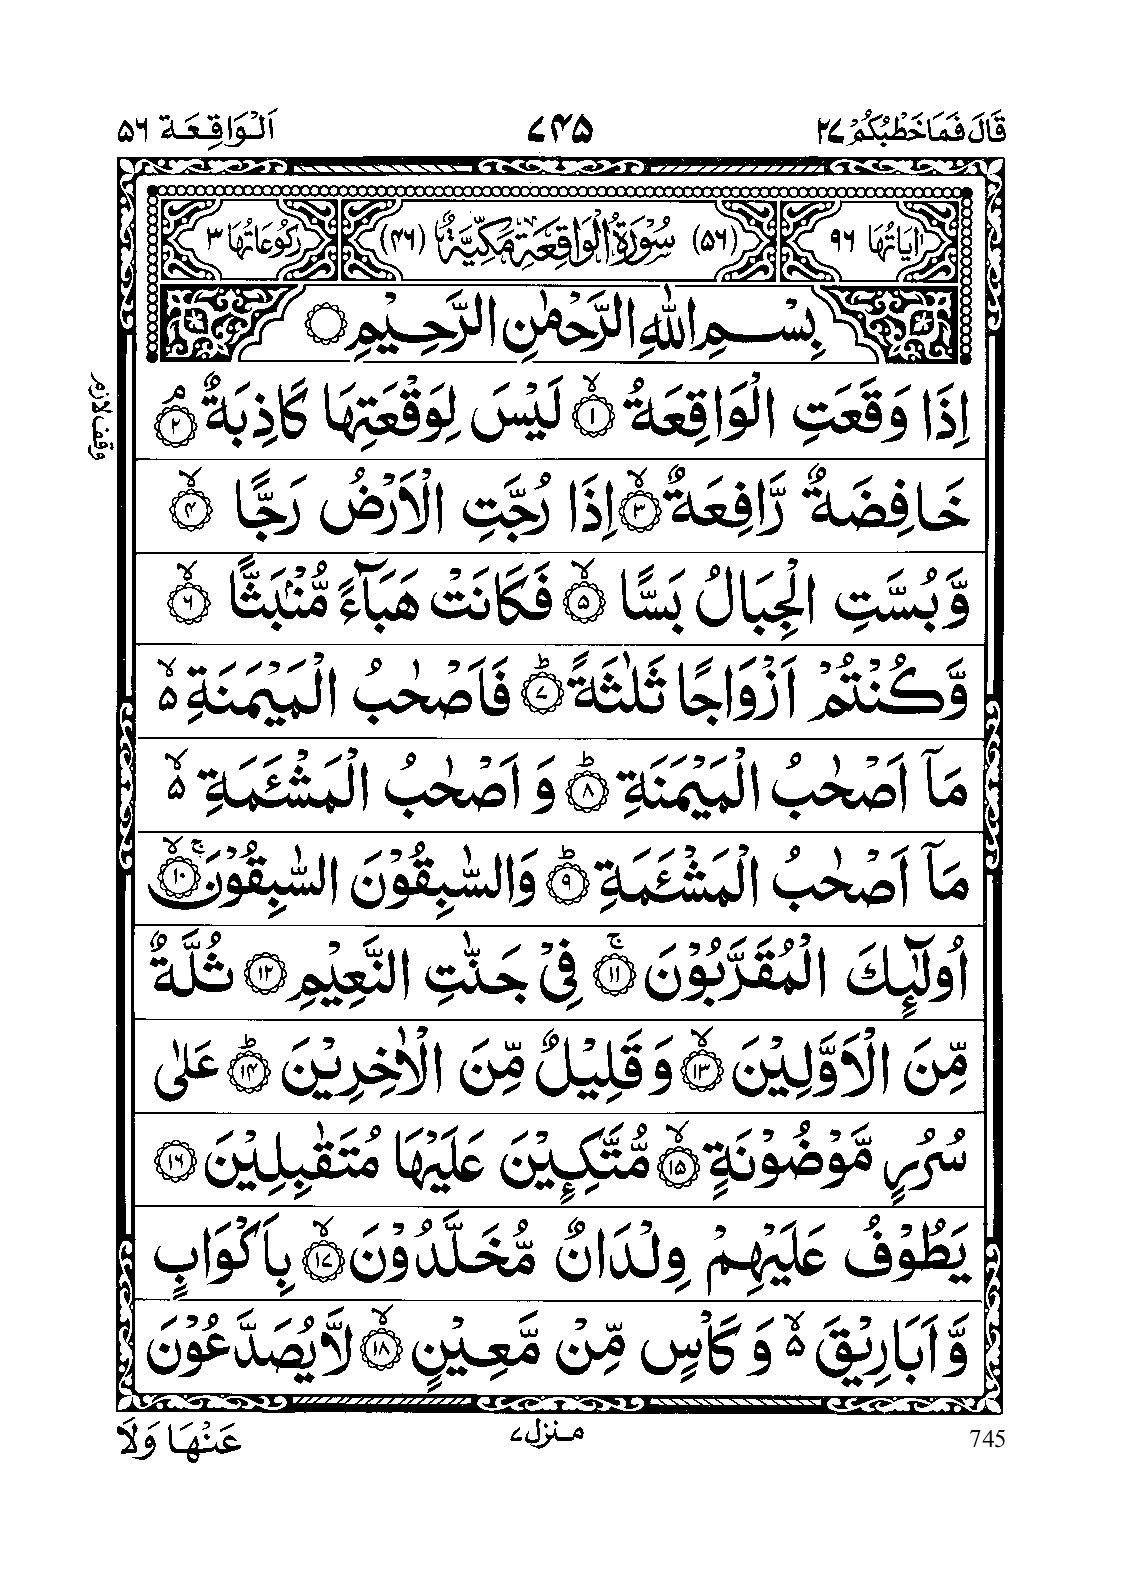 قَالَ فَمَا خَطْبُكُمْ ٢٧ ٧٤٥ اَلْوَاقِعَة ٥٦
اٰيَاتُهَا ٩٦ (٥٦) سُوْرَةُ الْوَاقِعَةِ مَكِّيَّةٌ (٤٦) رُكُوْعَاتُهَا ٣
بِسْمِ اللّٰهِ الرَّحْمٰنِ الرَّحِيْمِ
اِذَا وَقَعَتِ الْوَاقِعَةُ ۙ﴿١﴾ لَيْسَ لِوَقْعَتِهَا كَاذِبَةٌ ۘ﴿٢﴾
وقف لازم
خَافِضَةٌ رَّافِعَةٌ ۙ﴿٣﴾ اِذَا رُجَّتِ الْاَرْضُ رَجًّا ۙ﴿٤﴾
وَّبُسَّتِ الْجِبَالُ بَسًّا ۙ﴿٥﴾ فَكَانَتْ هَبَآءً مُّنْۢبَثًّا ۙ﴿٦﴾
وَّكُنْتُمْ اَزْوَاجًا ثَلٰثَةً ؕ﴿٧﴾ فَاَصْحٰبُ الْمَيْمَنَةِ ۙ۵
مَآ اَصْحٰبُ الْمَيْمَنَةِ ؕ﴿٨﴾ وَ اَصْحٰبُ الْمَشْئَمَةِ ۙ۵
مَآ اَصْحٰبُ الْمَشْئَمَةِ ؕ﴿٩﴾ وَالسّٰبِقُوْنَ السّٰبِقُوْنَ ۚۙ﴿١٠﴾
اُولٰٓئِكَ الْمُقَرَّبُوْنَ ۚ﴿١١﴾ فِيْ جَنّٰتِ النَّعِيْمِ ﴿١٢﴾ ثُلَّةٌ
مِّنَ الْاَوَّلِيْنَ ۙ﴿١٣﴾ وَ قَلِيْلٌ مِّنَ الْاٰخِرِيْنَ ؕ﴿١٤﴾ عَلٰى
سُرُرٍ مَّوْضُوْنَةٍ ۙ﴿١٥﴾ مُّتَّكِـِٕيْنَ عَلَيْهَا مُتَقٰبِلِيْنَ ﴿١٦﴾
يَطُوْفُ عَلَيْهِمْ وِلْدَانٌ مُّخَلَّدُوْنَ ۙ﴿١٧﴾ بِاَكْوَابٍ
وَّ اَبَارِيْقَ ۙ۵ وَ كَاْسٍ مِّنْ مَّعِيْنٍ ۙ﴿١٨﴾ لَّا يُصَدَّعُوْنَ
745 منزل ٧ عَنْهَا وَلَا